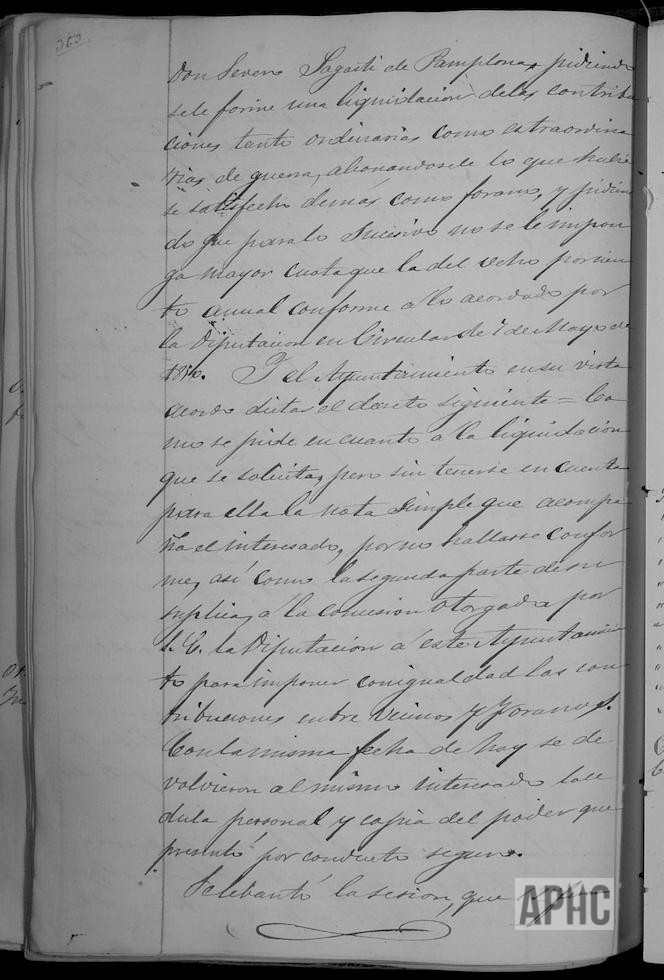 363
Don Severo Sagasti de Pamplona, pidiendo
sele forme una liquidacion delas contribu
ciones tanto ordinarias como estraordina
rias de guerra, abonandosele lo que hubie
se satisfecho demás como forano, y pidien
do que paralo sucesivo no se le impon
ga mayor cuota que la del ocho por cien
to anual conforme a lo acordado por
la Diputacion en Circular de 1º de Mayo de
Y el Ayuntamiento ensu vista
acordó dictar el decreto siguiente = Co
mo se pide en cuanto á la liquidacion
que se solicita, pero sin tenerse en cuenta
para ella la nota simple que acompa
ña el interesado, por no hallarse confor
me, así como la segunda parte de su
suplica, á la concesion otorgada por
S. E. la Diputación á este Ayuntamien
to para imponer conigualdad las con
tribuciones entre vecinos y foranos.
Conlamisma fecha de hoy se de
volvieron al mismo interesado lacé
dula personal y copia del poder que
presentó por conducto seguro.
Selebantó la sesion, que
APHC